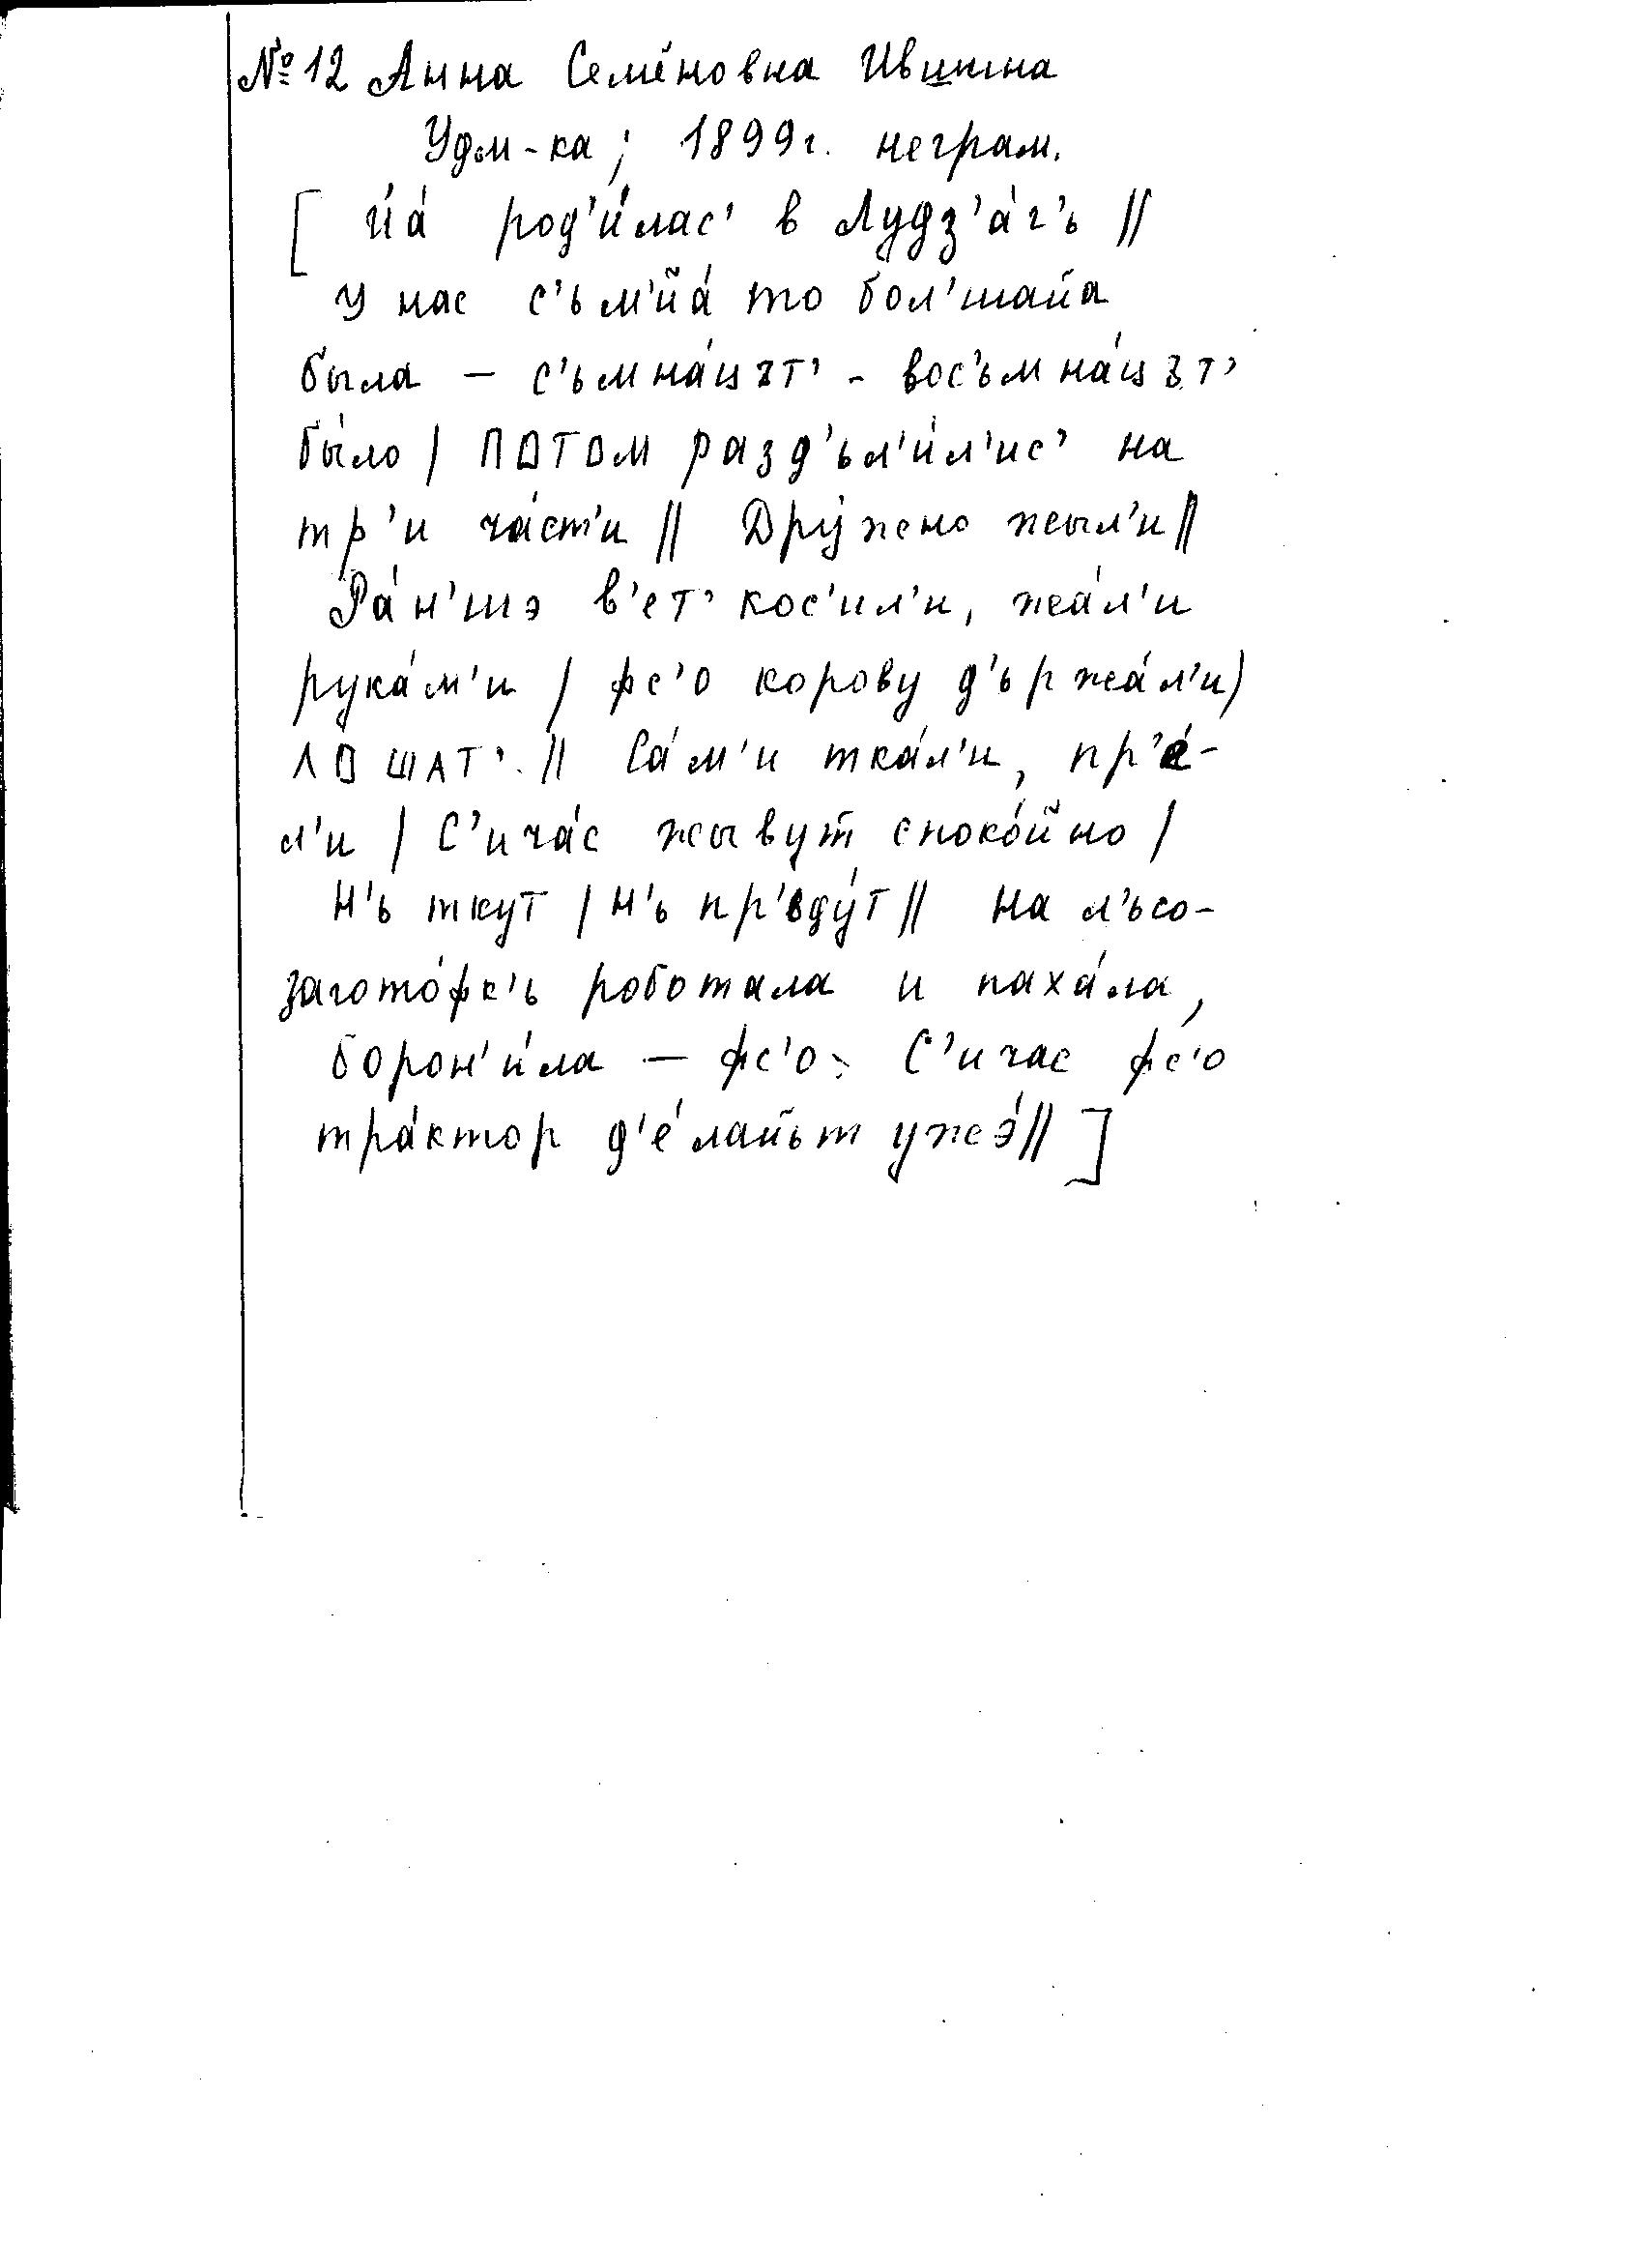 №12 Анна Семёновна Ившина
Удм-ка; 1899г. неграм.
[ йа́ род'и́лас' в Лудз'а́г'ь ||
у нас с'ьм'йа́ то бол'шайа
была – с'ьмна́цът' - вос'ьмна́цът'
бы́ло | потом разд'ьл'и́л'ис' на
тр'и ча́ст'и || Дру́жно жыл'и ||
Ра́н'шэ в'ет' кос'ил'и, жа́л'и
рука́м'и | фс'о корову д'ьржа́л'и |
лошат'. || Са́м'и тка́л'и, пр'а́-
л'и | С'ича́с жывут споко́йно |
Н'ь ткут | н'ь пр'ьду́т || На л'ьсо-
загото́фк'ь роботала и паха́ла,
борон'и́ла – фс'о. С'ичас фс'о
тра́ктор д'е́лайьт ужэ́ || ]